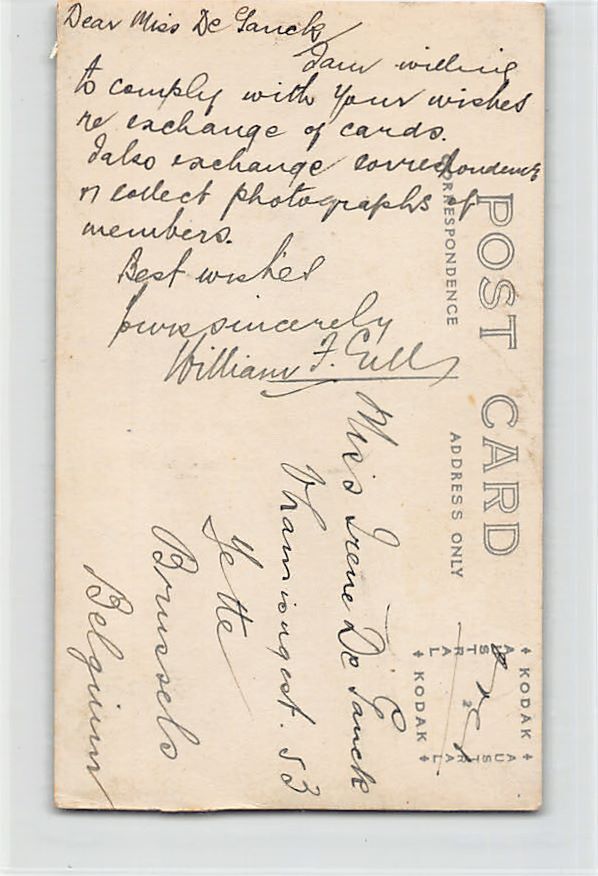 Dear Miss De Ganck
I am willing
to comply with your wishes
re exchange of cards.
I also exchange correspondence
n collect photographs of
members.
Best wishes
yours sincerely
William F. Gill
POST CARD
CORRESPONDENCE
ADDRESS ONLY
Miss Irene De Ganck
53
Jette
Brussels
Belgium
KODAK
AUSTRAL
KODAK
AUSTRAL